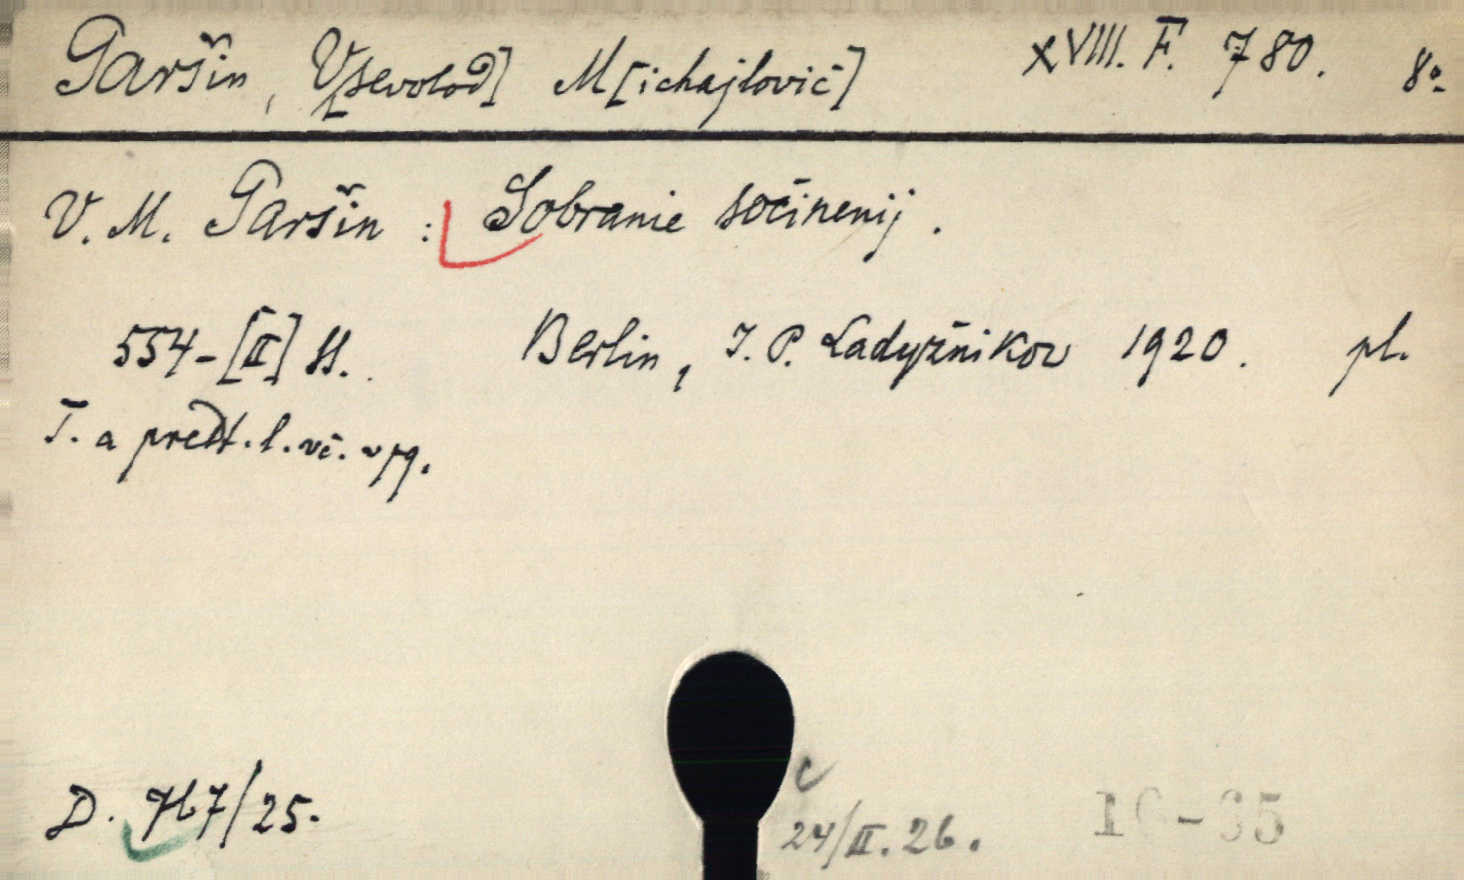 Garšin, V[sevolod] M[ichajlovič] XVIII. F. 780. 8°
V. M. Garšin : Sobranie sočinenij.
554-[II] s. Berlin, I. P. Ladyžnikov 1920. pl.
T. a předt. l. vč. v pg.
D. /25.
c
24/II. 26.